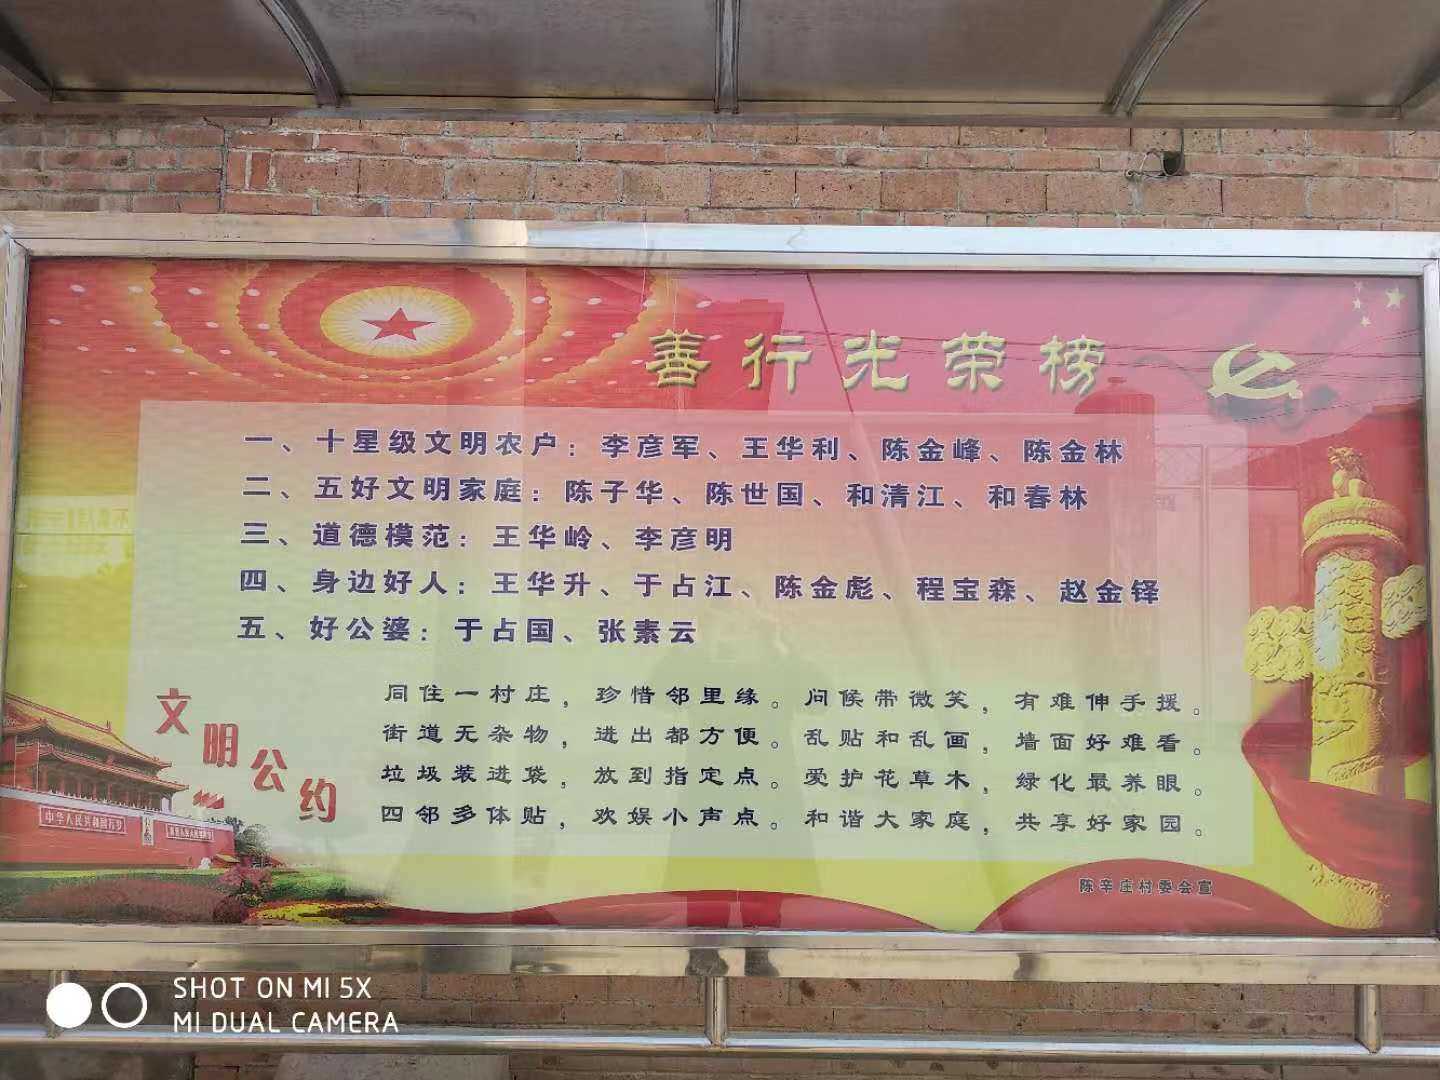 善行光荣榜
一、十星级文明农户：李彦军、王华利、陈金峰、陈金林
二、五好文明家庭：陈子华、陈世国、和清江、和春林
三、道德模范：王华岭、李彦明
四、身边好人：王华升、于占江、陈金彪、程宝森、赵金铎
五、好公婆：于占国、张素云
文明公约
同住一村庄，珍惜邻里缘。问候带微笑，有难伸手援。
街道无杂物，进出都方便。乱贴和乱画，墙面好难看。
垃圾装进袋，放到指定点。爱护花草木，绿化最养眼。
四邻多体贴，欢娱小声点。和谐大家庭，共享好家园。
中华人民共和国万岁
陈辛庄村委会宣
SHOT ON MI 5X
MI DUAL CAMERA